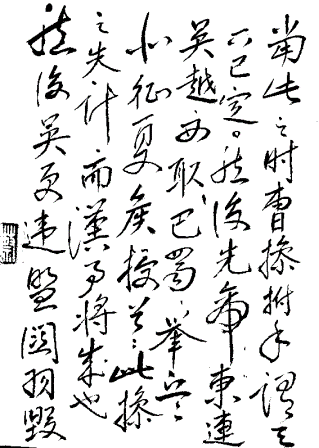 當此之时曹操拊手謂天
下已定然後先帝東連
吳越西取巴蜀舉兵
北征夏侯授首此操
之失計而漢事將成也
然後吳更違盟關羽毀